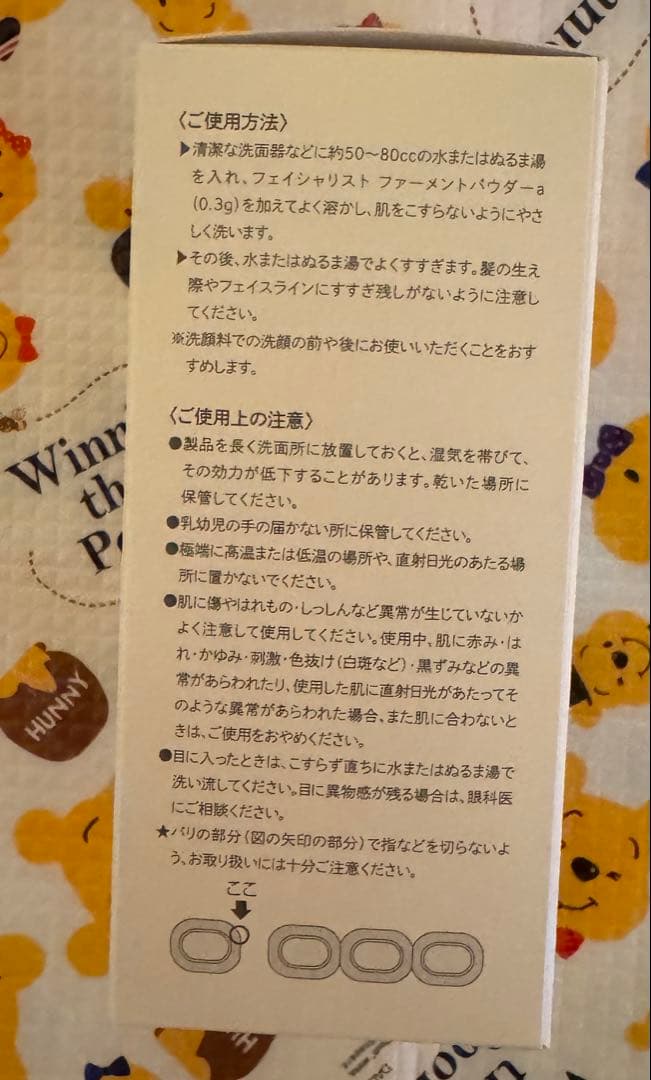 〈ご使用方法〉
▶清潔な洗面器などに約50〜80ccの水またはぬるま湯
を入れ、フェイシャリスト ファーメントパウダーa
(0.3g)を加えてよく溶かし、肌をこすらないようにやさ
しく洗います。
▶その後、水またはぬるま湯でよくすすぎます。髪の生え
際やフェイスラインにすすぎ残しがないように注意し
てください。
※洗顔料での洗顔の前や後にお使いいただくことをおす
すめします。
〈ご使用上の注意〉
●製品を長く洗面所に放置しておくと、湿気を帯びて、
その効力が低下することがあります。乾いた場所に
保管してください。
●乳幼児の手の届かない所に保管してください。
●極端に高温または低温の場所や、直射日光のあたる場
所に置かないでください。
●肌に傷やはれもの・しっしんなど異常が生じていないか
よく注意して使用してください。使用中、肌に赤み・は
れ・かゆみ・刺激・色抜け(白斑など)・黒ずみなどの異
常があらわれたり、使用した肌に直射日光があたってそ
のような異常があらわれた場合、また肌に合わないと
きは、ご使用をおやめください。
●目に入ったときは、こすらず直ちに水またはぬるま湯で
洗い流してください。目に異物感が残る場合は、眼科医
にご相談ください。
★バリの部分(図の矢印の部分)で指などを切らないよ
う、お取り扱いには十分ご注意ください。
ここ
Winn
th
P
HUNNY